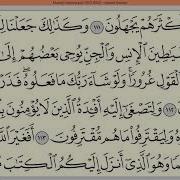 كْثَرَهُمْ يَجْهَلُونَ ١١١ وَكَذَٰلِكَ جَعَلْنَا لِ
يَٰطِينَ ٱلْإِنسِ وَٱلْجِنِّ يُوحِى بَعْضُهُمْ إِلَىٰ
ٱلْقَوْلِ غُرُورًا وَلَوْ شَآءَ رَبُّكَ مَا فَعَلُوهُ فَ
١١٢ وَلِتَصْغَىٰٓ إِلَيْهِ أَفْـِٔدَةُ ٱلَّذِينَ لَا يُؤْمِنُونَ
هُ وَلِيَقْتَرِفُوا۟ مَا هُم مُّقْتَرِفُونَ ١١٣ أَفَغَيْرَ ٱللَّ
مًا وَهُوَ ٱلَّذِىٓ أَنزَلَ إِلَيْكُمُ ٱلْكِتَٰبَ